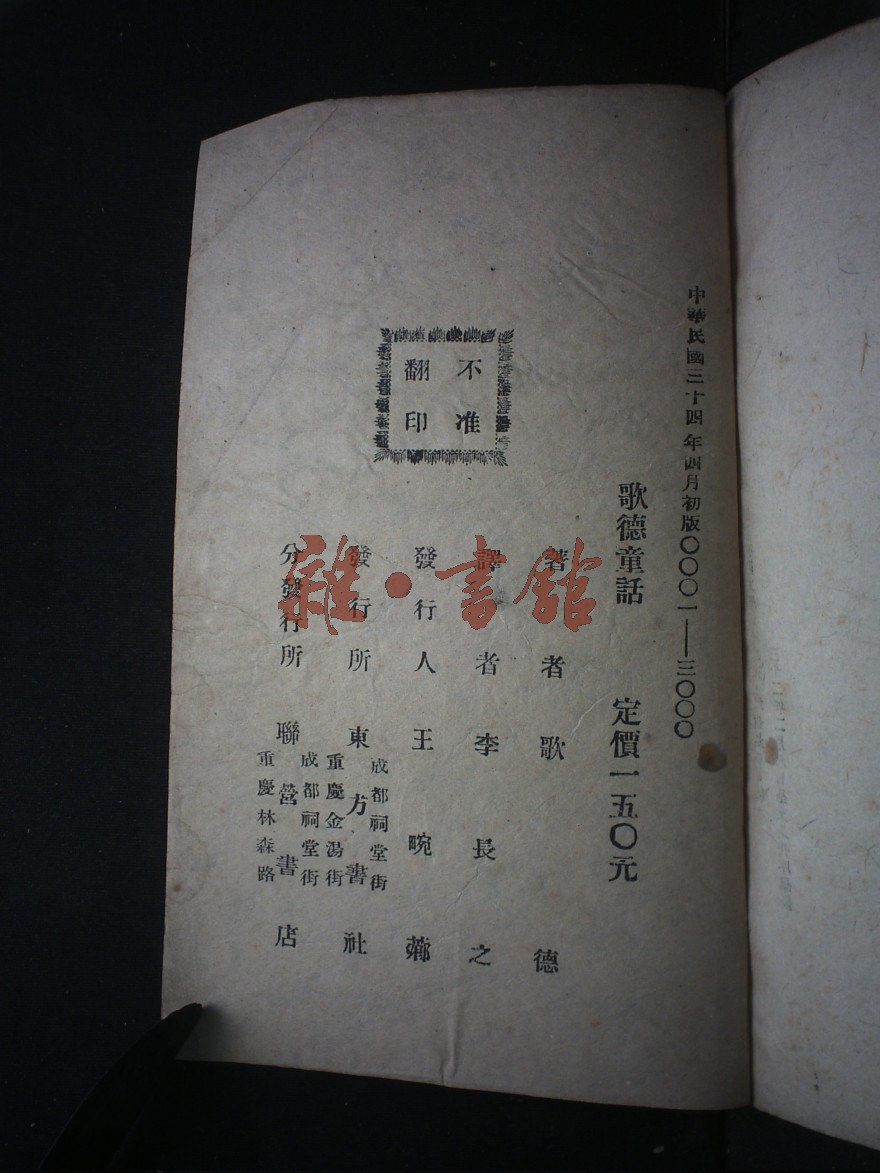 中華民國三十四年四月初版〇〇〇一——三〇〇〇
歌德童話 定價一五〇元
著者 歌德
譯者 李長之
發行人 王畹薌
發行所 東方書社
成都祠堂街
重慶金湯街
分發行所 聯營書店
成都祠堂街
重慶林森路
不准
翻印
雜·書館